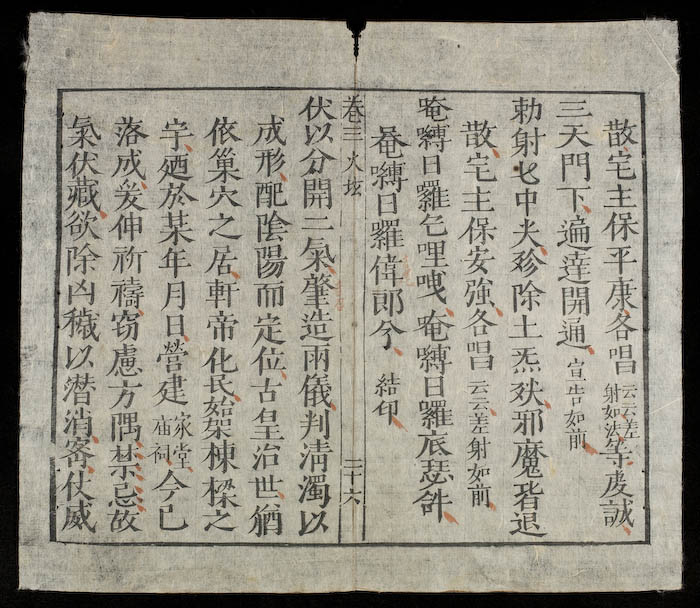 散宅主保平康各唱云云差射如法等虔誠
三天門下遍達開通宣告如前
勅射七中央殄除土炁妖邪魔皆退
散宅主保安強各唱云云差射如前
唵嚩日羅乞哩曳唵嚩日羅底瑟
唵嚩日羅偉郎兮結印
卷三火坛 二十六
伏以分開二氣肇造兩儀判清濁以
成形配陰陽而定位古皇治世猶
依巢穴之居軒帝化民始架棟樑之
宇廼於某年月日營建家堂庙祠今已
落成爰伸祈禱窃慮方隅禁忌故
氣伏藏欲除凶穢以潛消宻仗威